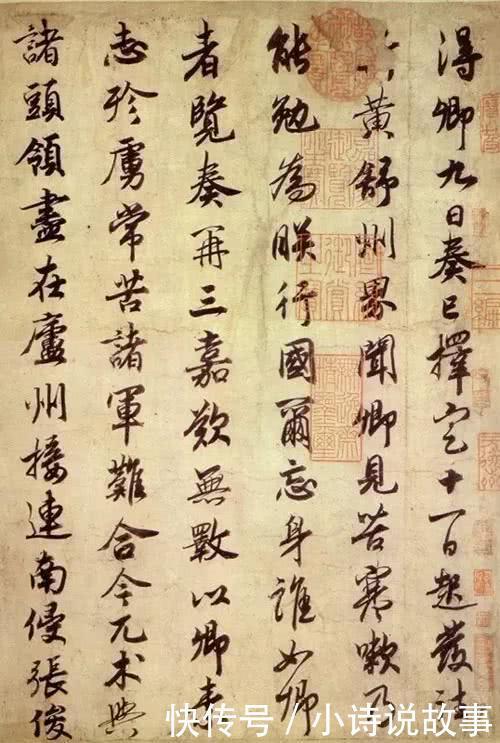 得卿九日奏已擇定十一日起發往
黃舒州界聞卿見苦寒嗽乃
能勉為朕行國爾忘身誰如卿
者覽奏再三嘉歎無斁以卿素
志殄虜常苦諸軍難合今兀术與
諸頭領盡在廬州接連南侵張俊
快传号 / 小诗说故事